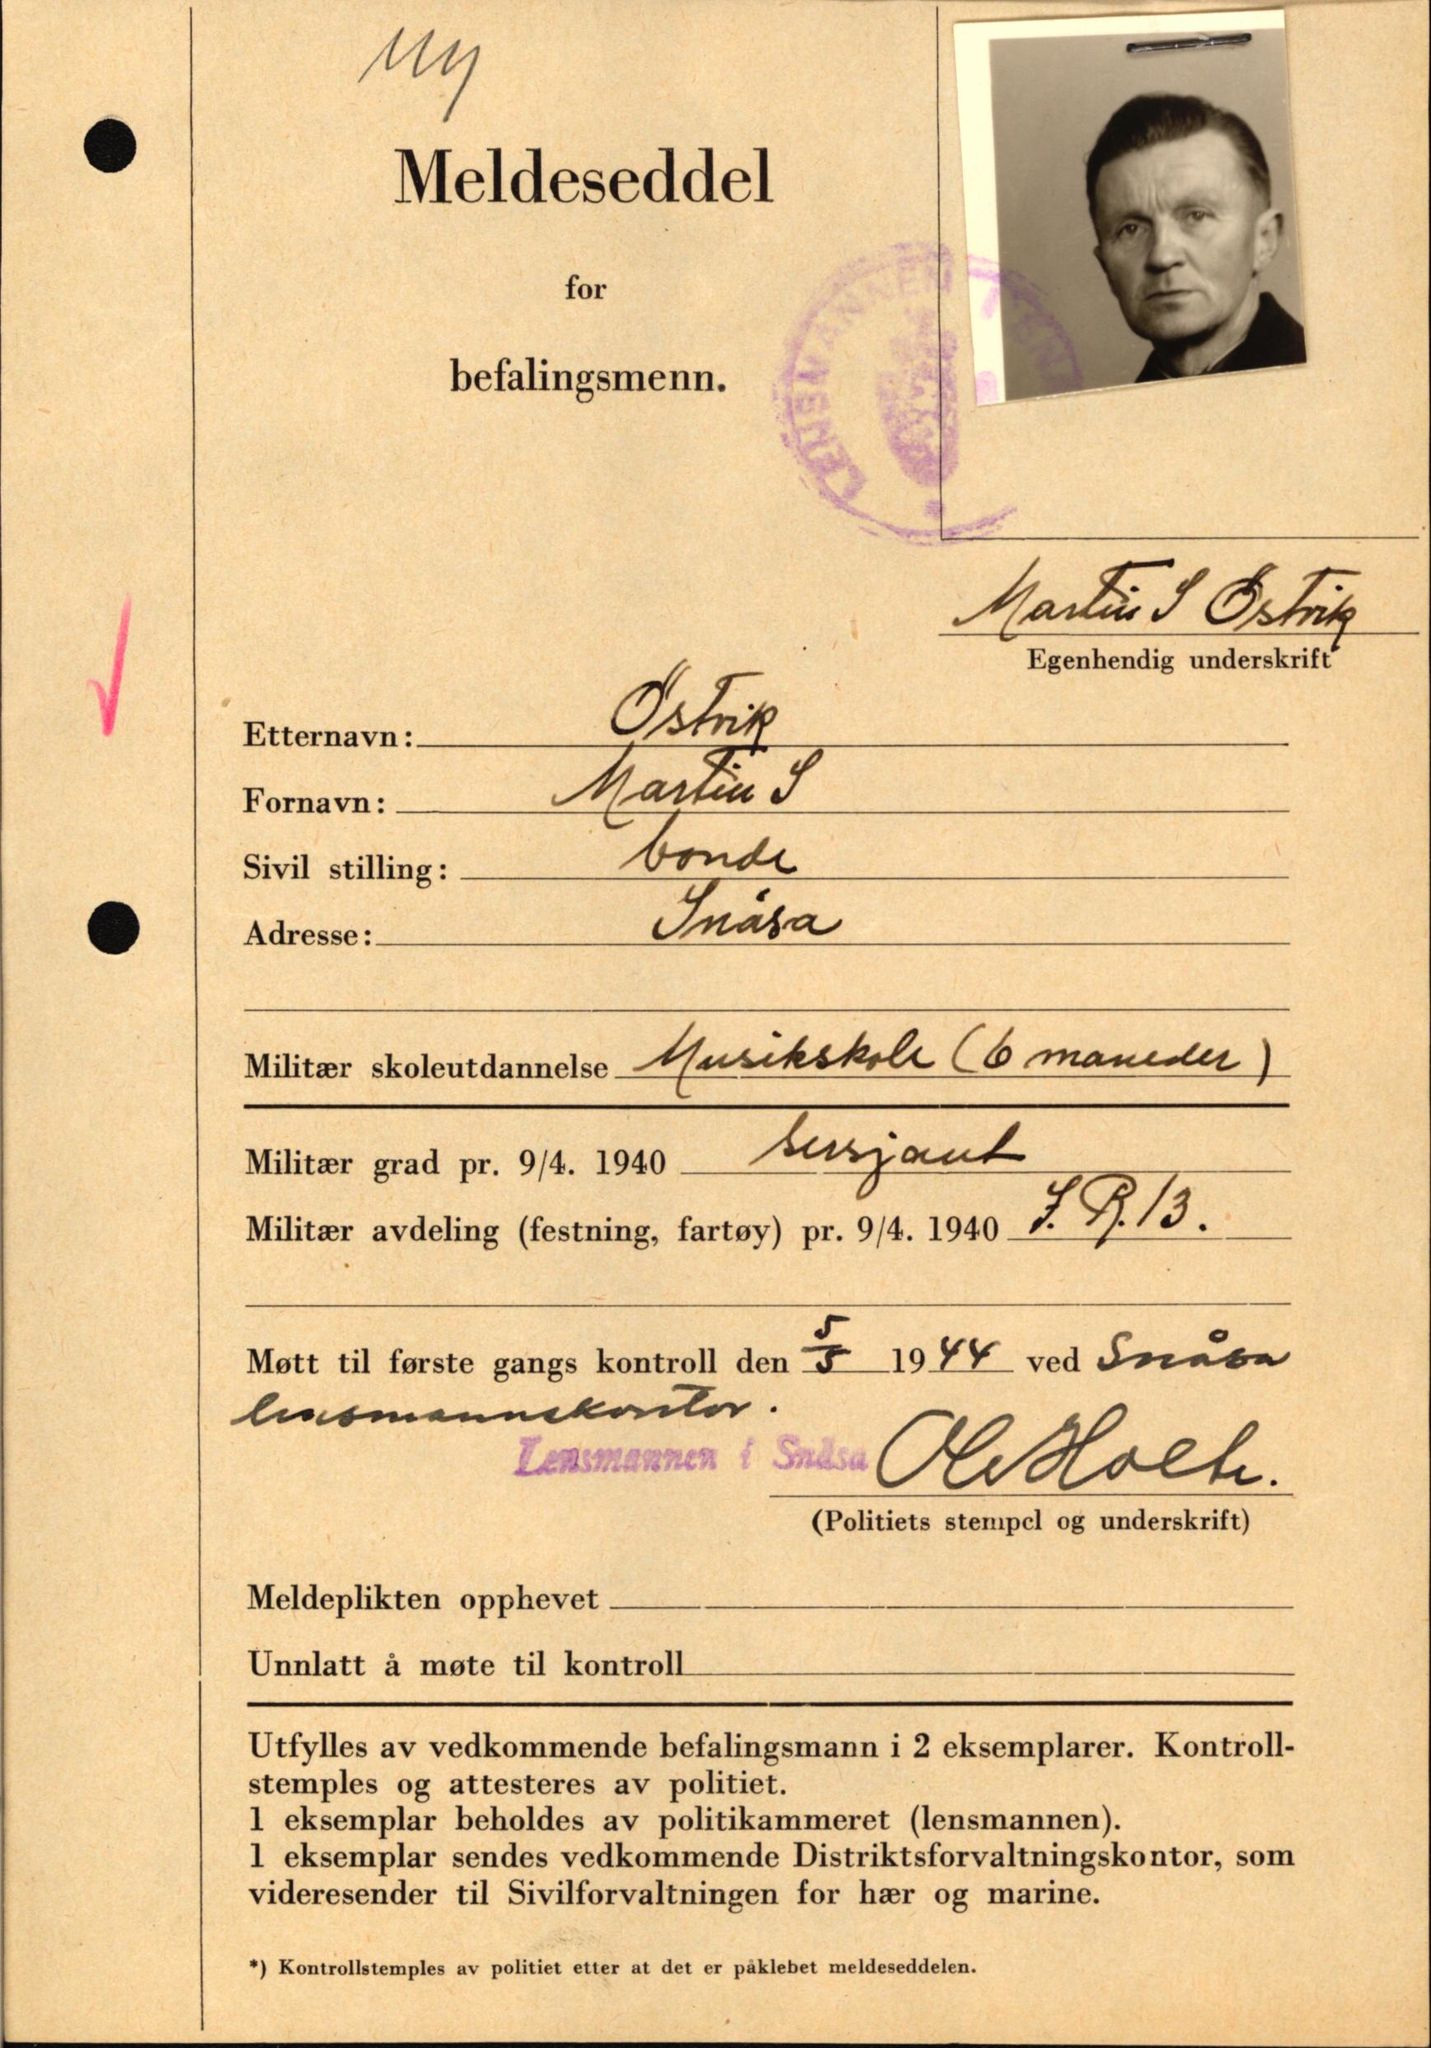 Ny
Meldeseddel
for
befalingsmenn.
LENSMANNEN I
Martin S Östvik
Egenhendig underskrift
Etternavn: Östvik
Fornavn: Martin S
Sivil stilling: bonde
Adresse: Snåsa
Militær skoleutdannelse Musikskole (6 maneder)
Militær grad pr. 9/4. 1940 sersjant
Militær avdeling (festning, fartøy) pr. 9/4. 1940 J. R. 13.
Møtt til første gangs kontroll den 5/5 1944 ved Snåsa
lensmannskontor.
Lensmannen i Snåsa Ole Holte.
(Politiets stempel og underskrift)
Meldeplikten opphevet
Unnlatt å møte til kontroll
Utfylles av vedkommende befalingsmann i 2 eksemplarer. Kontroll-
stemples og attesteres av politiet.
1 eksemplar beholdes av politikammeret (lensmannen).
1 eksemplar sendes vedkommende Distriktsforvaltningskontor, som
videresender til Sivilforvaltningen for hær og marine.
*) Kontrollstemples av politiet etter at det er påklebet meldeseddelen.